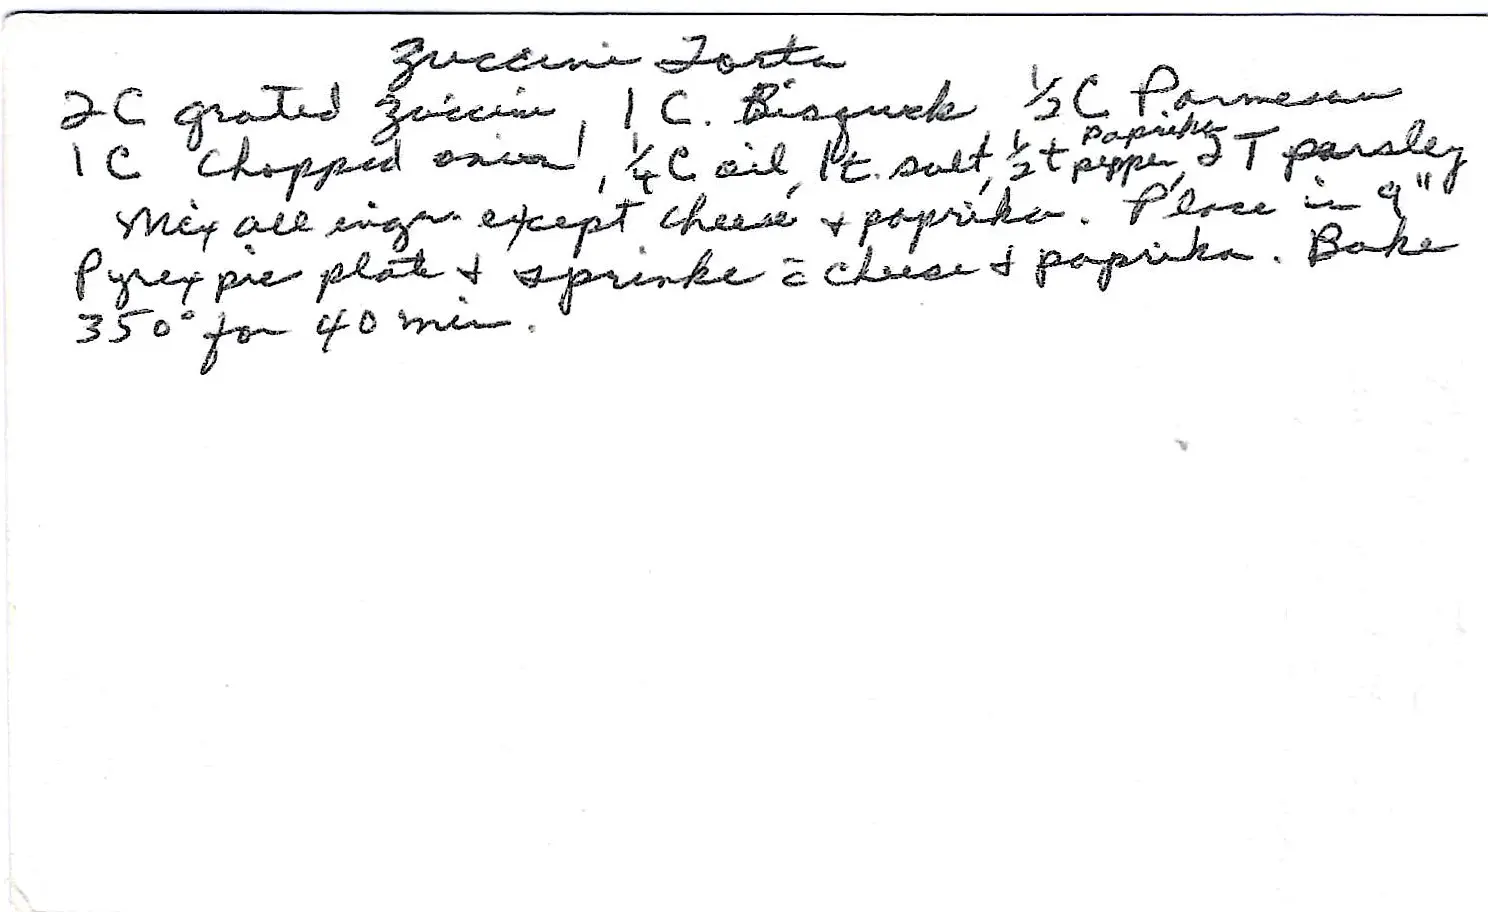 Zuccini Torta
2C grated zuccini, 1 C. Bisquick ½C Parmesan
1C chopped onion, ¼C oil, 1t. salt, ½t pepper, paprika 2T parsley
Mix all ingr. except cheese + paprika. Place in 9"
Pyrex pie plate + sprinke c̄ cheese + paprika. Bake
350° for 40 min.